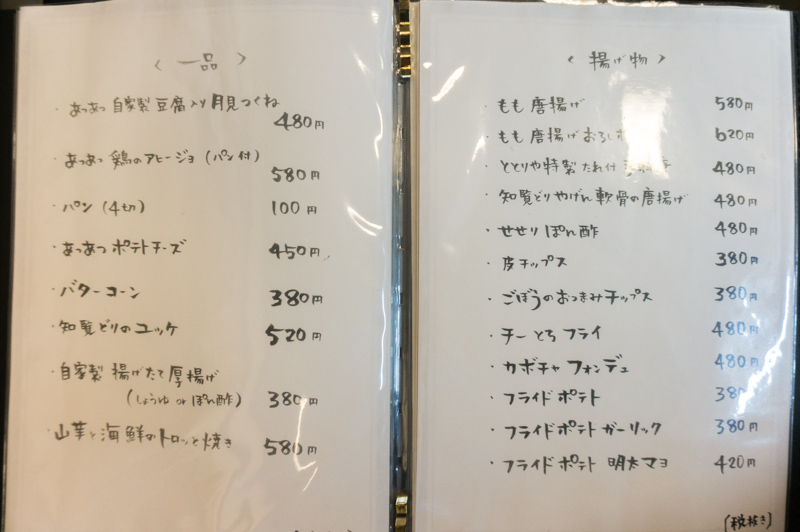 〈 一品 〉
・あつあつ 自家製 豆腐入り 月見つくね
480円
・あつあつ 鶏のアヒージョ (パン付)
580円
・パン (4切) 100円
・あつあつ ポテトチーズ 450円
・バターコーン 380円
・知覧どりのユッケ 520円
・自家製 揚げたて厚揚げ
(しょうゆ or ぽん酢) 380円
・山芋と海鮮のトロッと焼き 580円
〈 揚げ物 〉
・もも 唐揚げ 580円
・もも 唐揚げ おろし 620円
・ととりや特製 たれ付 480円
・知覧どりやげん軟骨の唐揚げ 480円
・せせり ぽん酢 480円
・皮チップス 380円
・ごぼうのおつまみチップス 380円
・チーとろフライ 480円
・カボチャ フォンデュ 480円
・フライドポテト 380円
・フライドポテト ガーリック 380円
・フライドポテト 明太マヨ 420円
(税抜き)